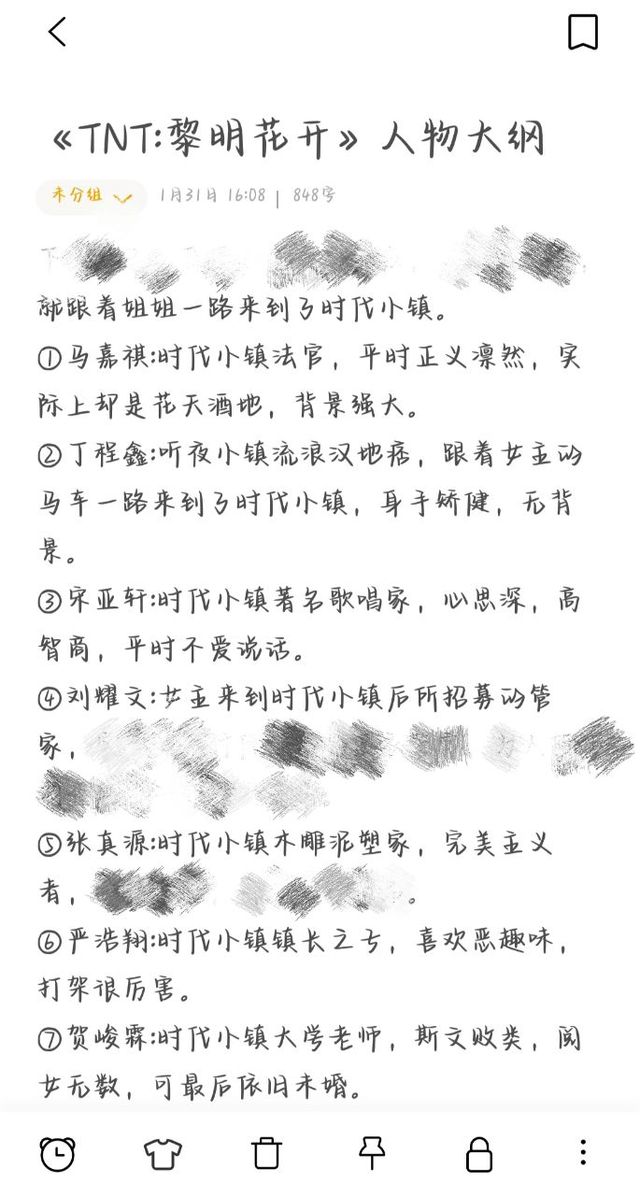 《TNT:黎明花开》人物大纲
未分组
1月31日 16:08 | 848字
就跟着姐姐一路来到了时代小镇。
①马嘉祺:时代小镇法官，平时正义凛然，实
际上却是花天酒地，背景强大。
②丁程鑫:听夜小镇流浪汉地痞，跟着女主的
马车一路来到了时代小镇，身手矫健，无背
景。
③宋亚轩:时代小镇著名歌唱家，心思深，高
智商，平时不爱说话。
④刘耀文:女主来到时代小镇后所招募的管
家，
⑤张真源:时代小镇木雕泥塑家，完美主义
者，
。
⑥严浩翔:时代小镇镇长之子，喜欢恶趣味，
打架很厉害。
⑦贺峻霖:时代小镇大学老师，斯文败类，阅
女无数，可最后依旧未婚。